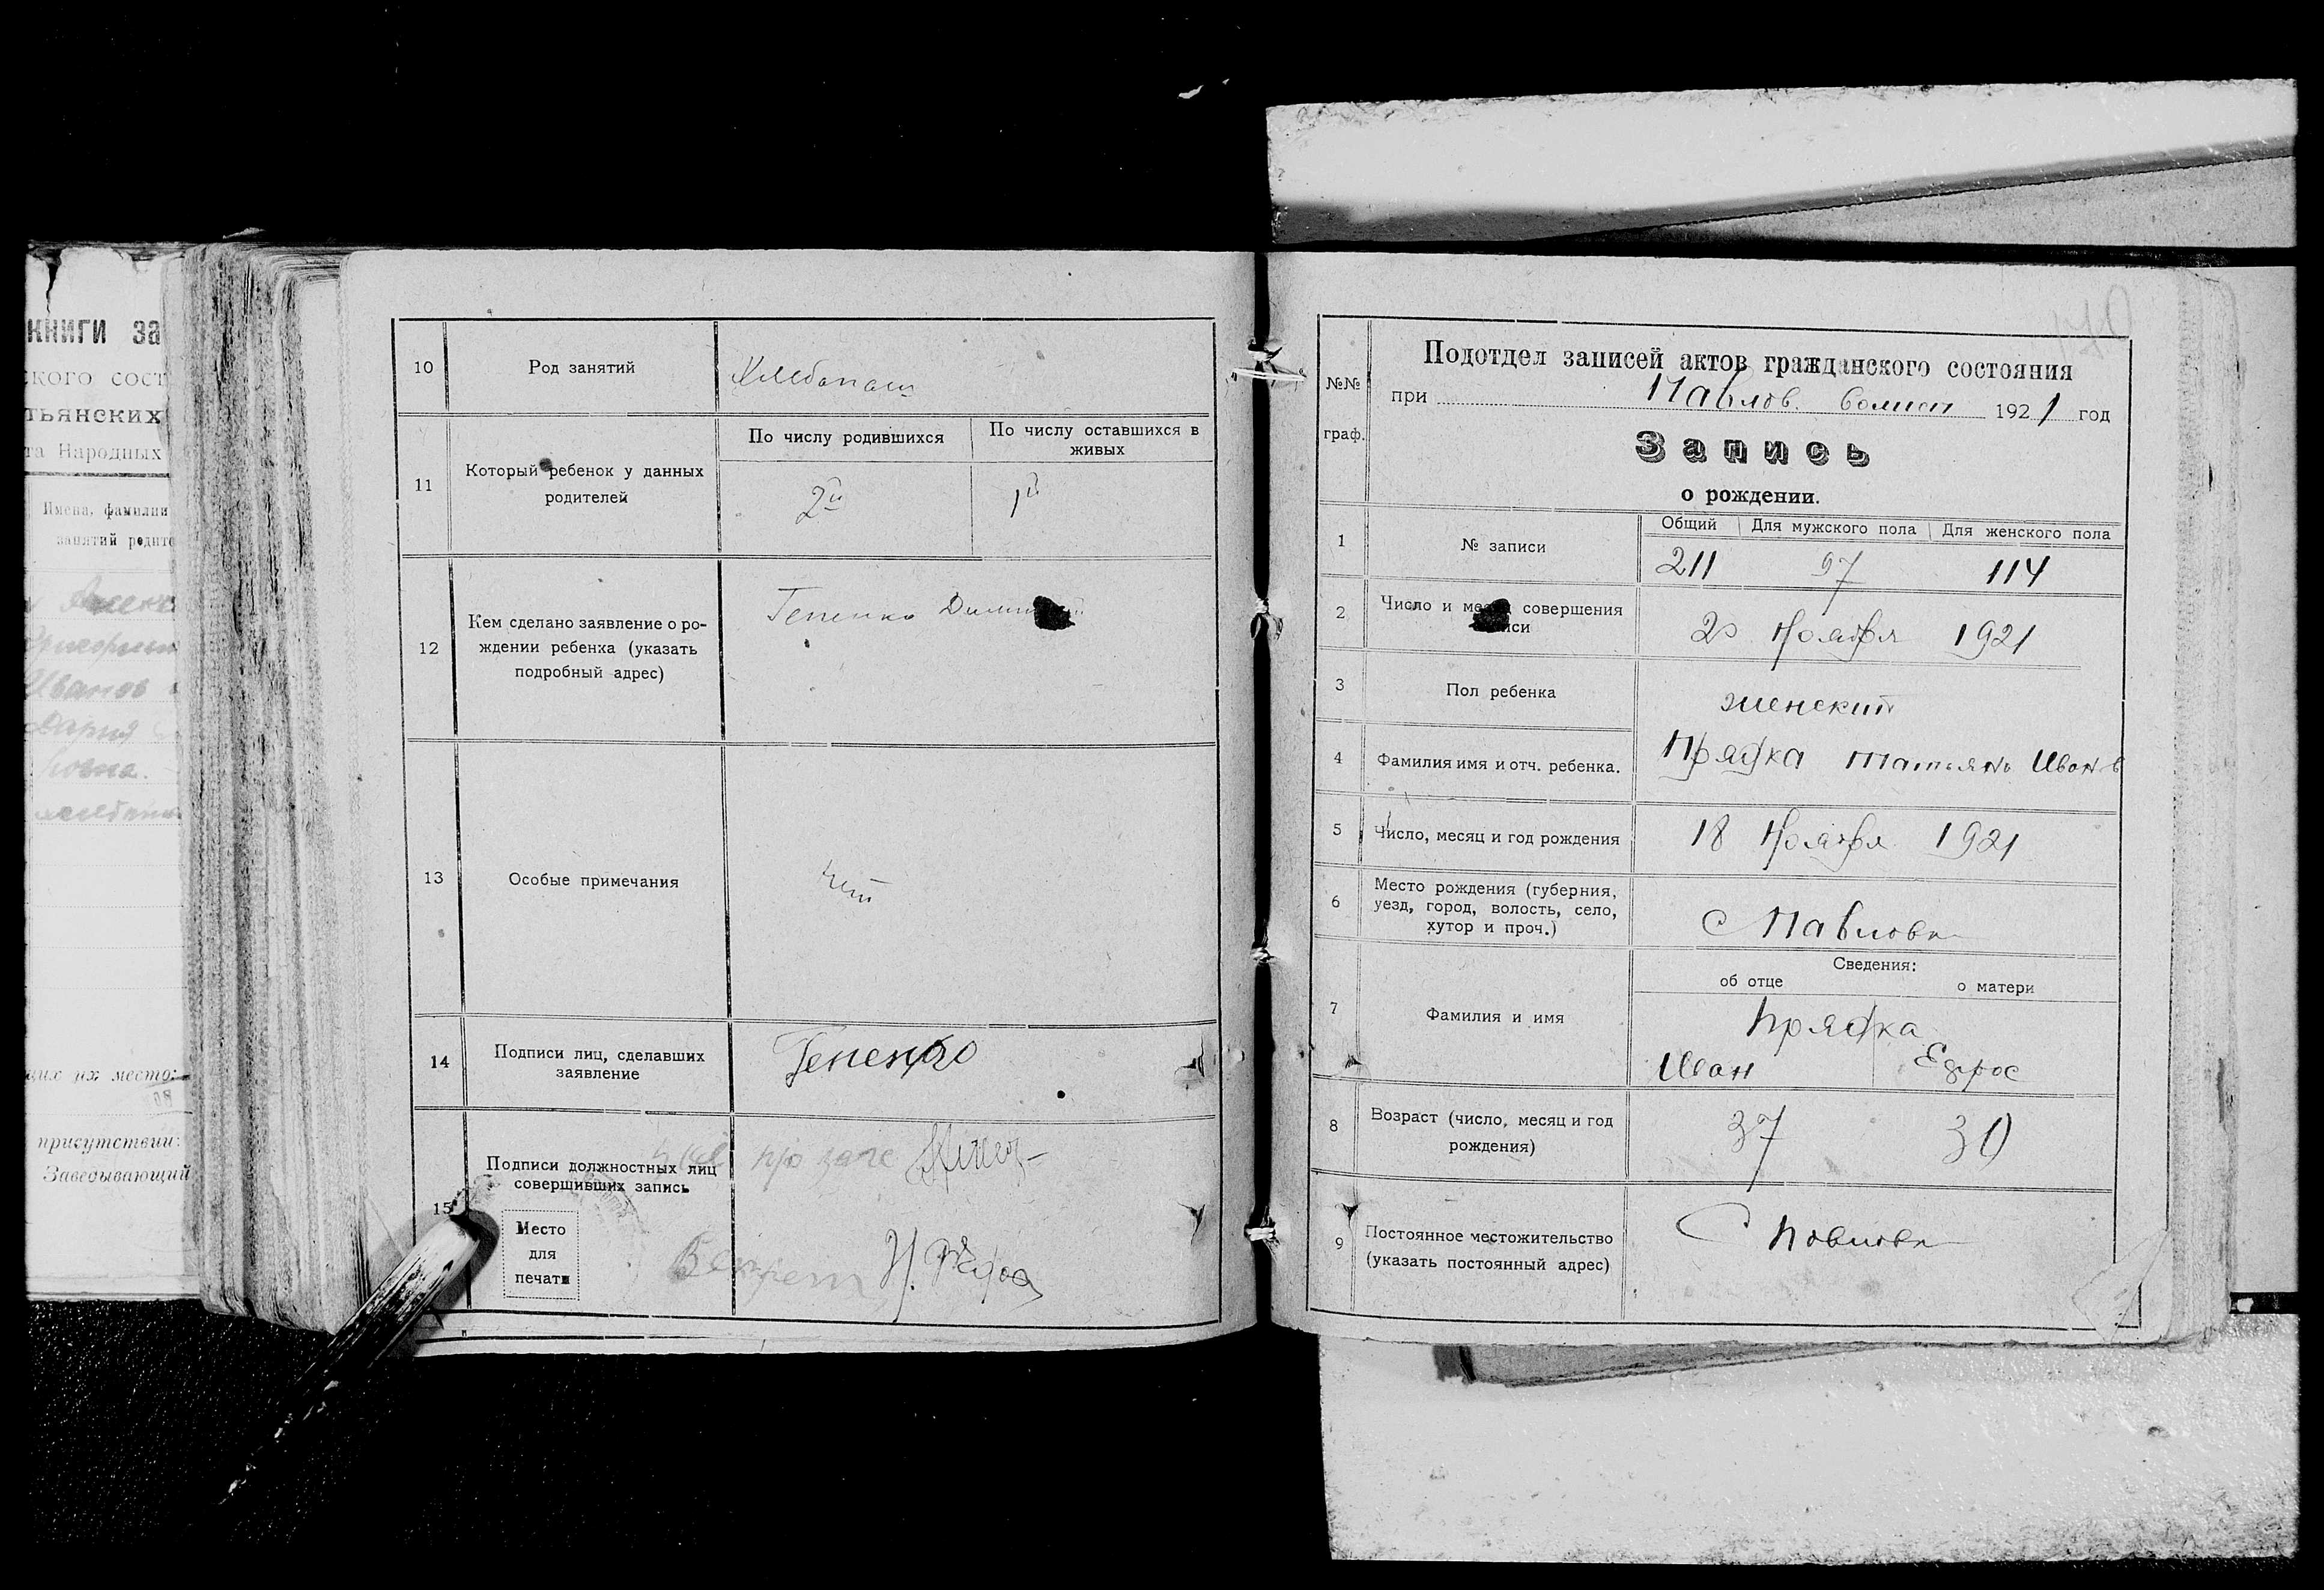 КНИГИ ЗА
кого сост
тьянских
та Народных
Имена, фамилии
занятий родите
Иванов
Дария
щих их место:
присутствии:
Заведывающий
10 Род занятий Хлебопаш
11 Который ребенок у данных родителей
По числу родившихся По числу оставшихся в
живых
2й 1й
12 Кем сделано заявление о ро-
ждении ребенка (указать
подробный адрес)
Гепенко
13 Особые примечания нет
14 Подписи лиц, сделавших
заявление
Гепенко
15 Подписи должностных лиц
совершивших запись
Место
для
печати
№№
граф.
Подотдел записей актов гражданского состояния
при Павлов. волист 1921 год
Запись
о рождении.
1 № записи
Общий Для мужского пола Для женского пола
211 97 114
2 Число и совершения
20 Ноября 1921
3 Пол ребенка женский
4 Фамилия имя и отч. ребенка. Прядка Татьяна Иванов
5 Число, месяц и год рождения 18 Ноября 1921
6 Место рождения (губерния,
уезд, город, волость, село,
хутор и проч.)
с Павловка
Сведения:
об отце о матери
7 Фамилия и имя
Прядка
Иван Ефрос
8 Возраст (число, месяц и год
рождения)
37 30
9 Постоянное местожительство
(указать постоянный адрес)
С Павловка